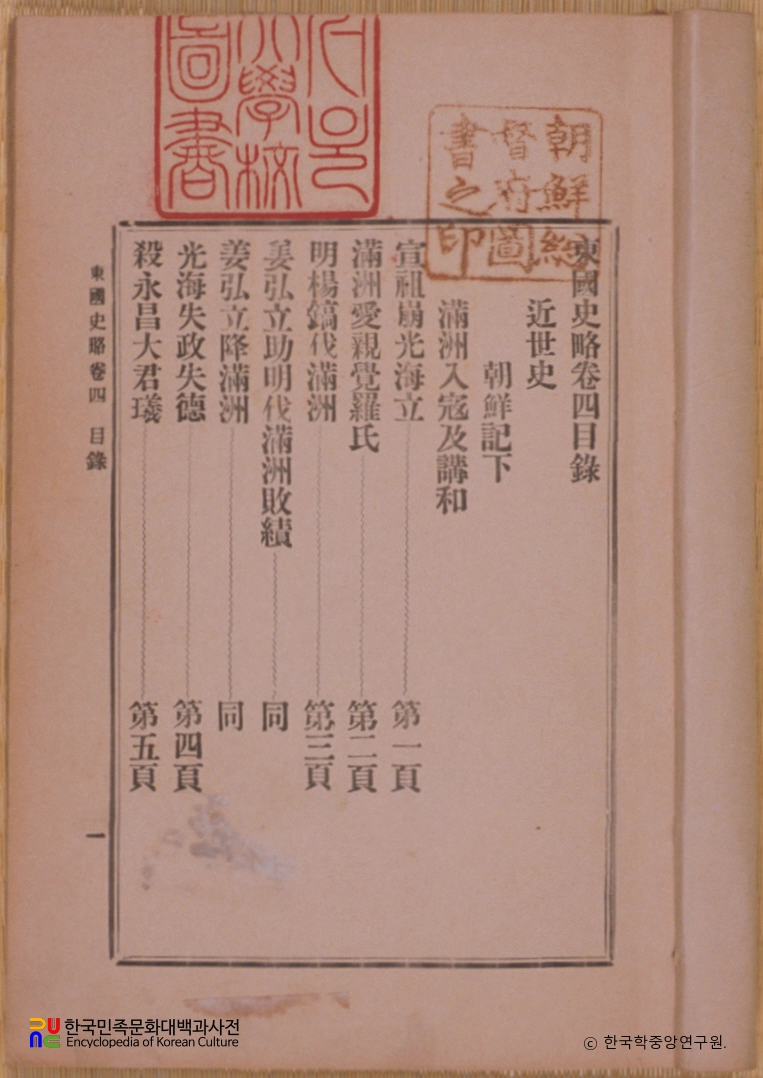 東國史略卷四目錄
近世史
朝鮮記下
滿洲入寇及講和
宣祖崩光海立 第一頁
滿洲愛親覺羅氏 第二頁
明楊鎬伐滿洲 第三頁
姜弘立助明伐滿洲敗績 同
姜弘立降滿洲 同
光海失政失德 第四頁
殺永昌大君㼁 第五頁
東國史略卷四 目錄
一
朝鮮總
督府圖
書之印
學校
圖書
한국민족문화대백과사전
Encyclopedia of Korean Culture
© 한국학중앙연구원.